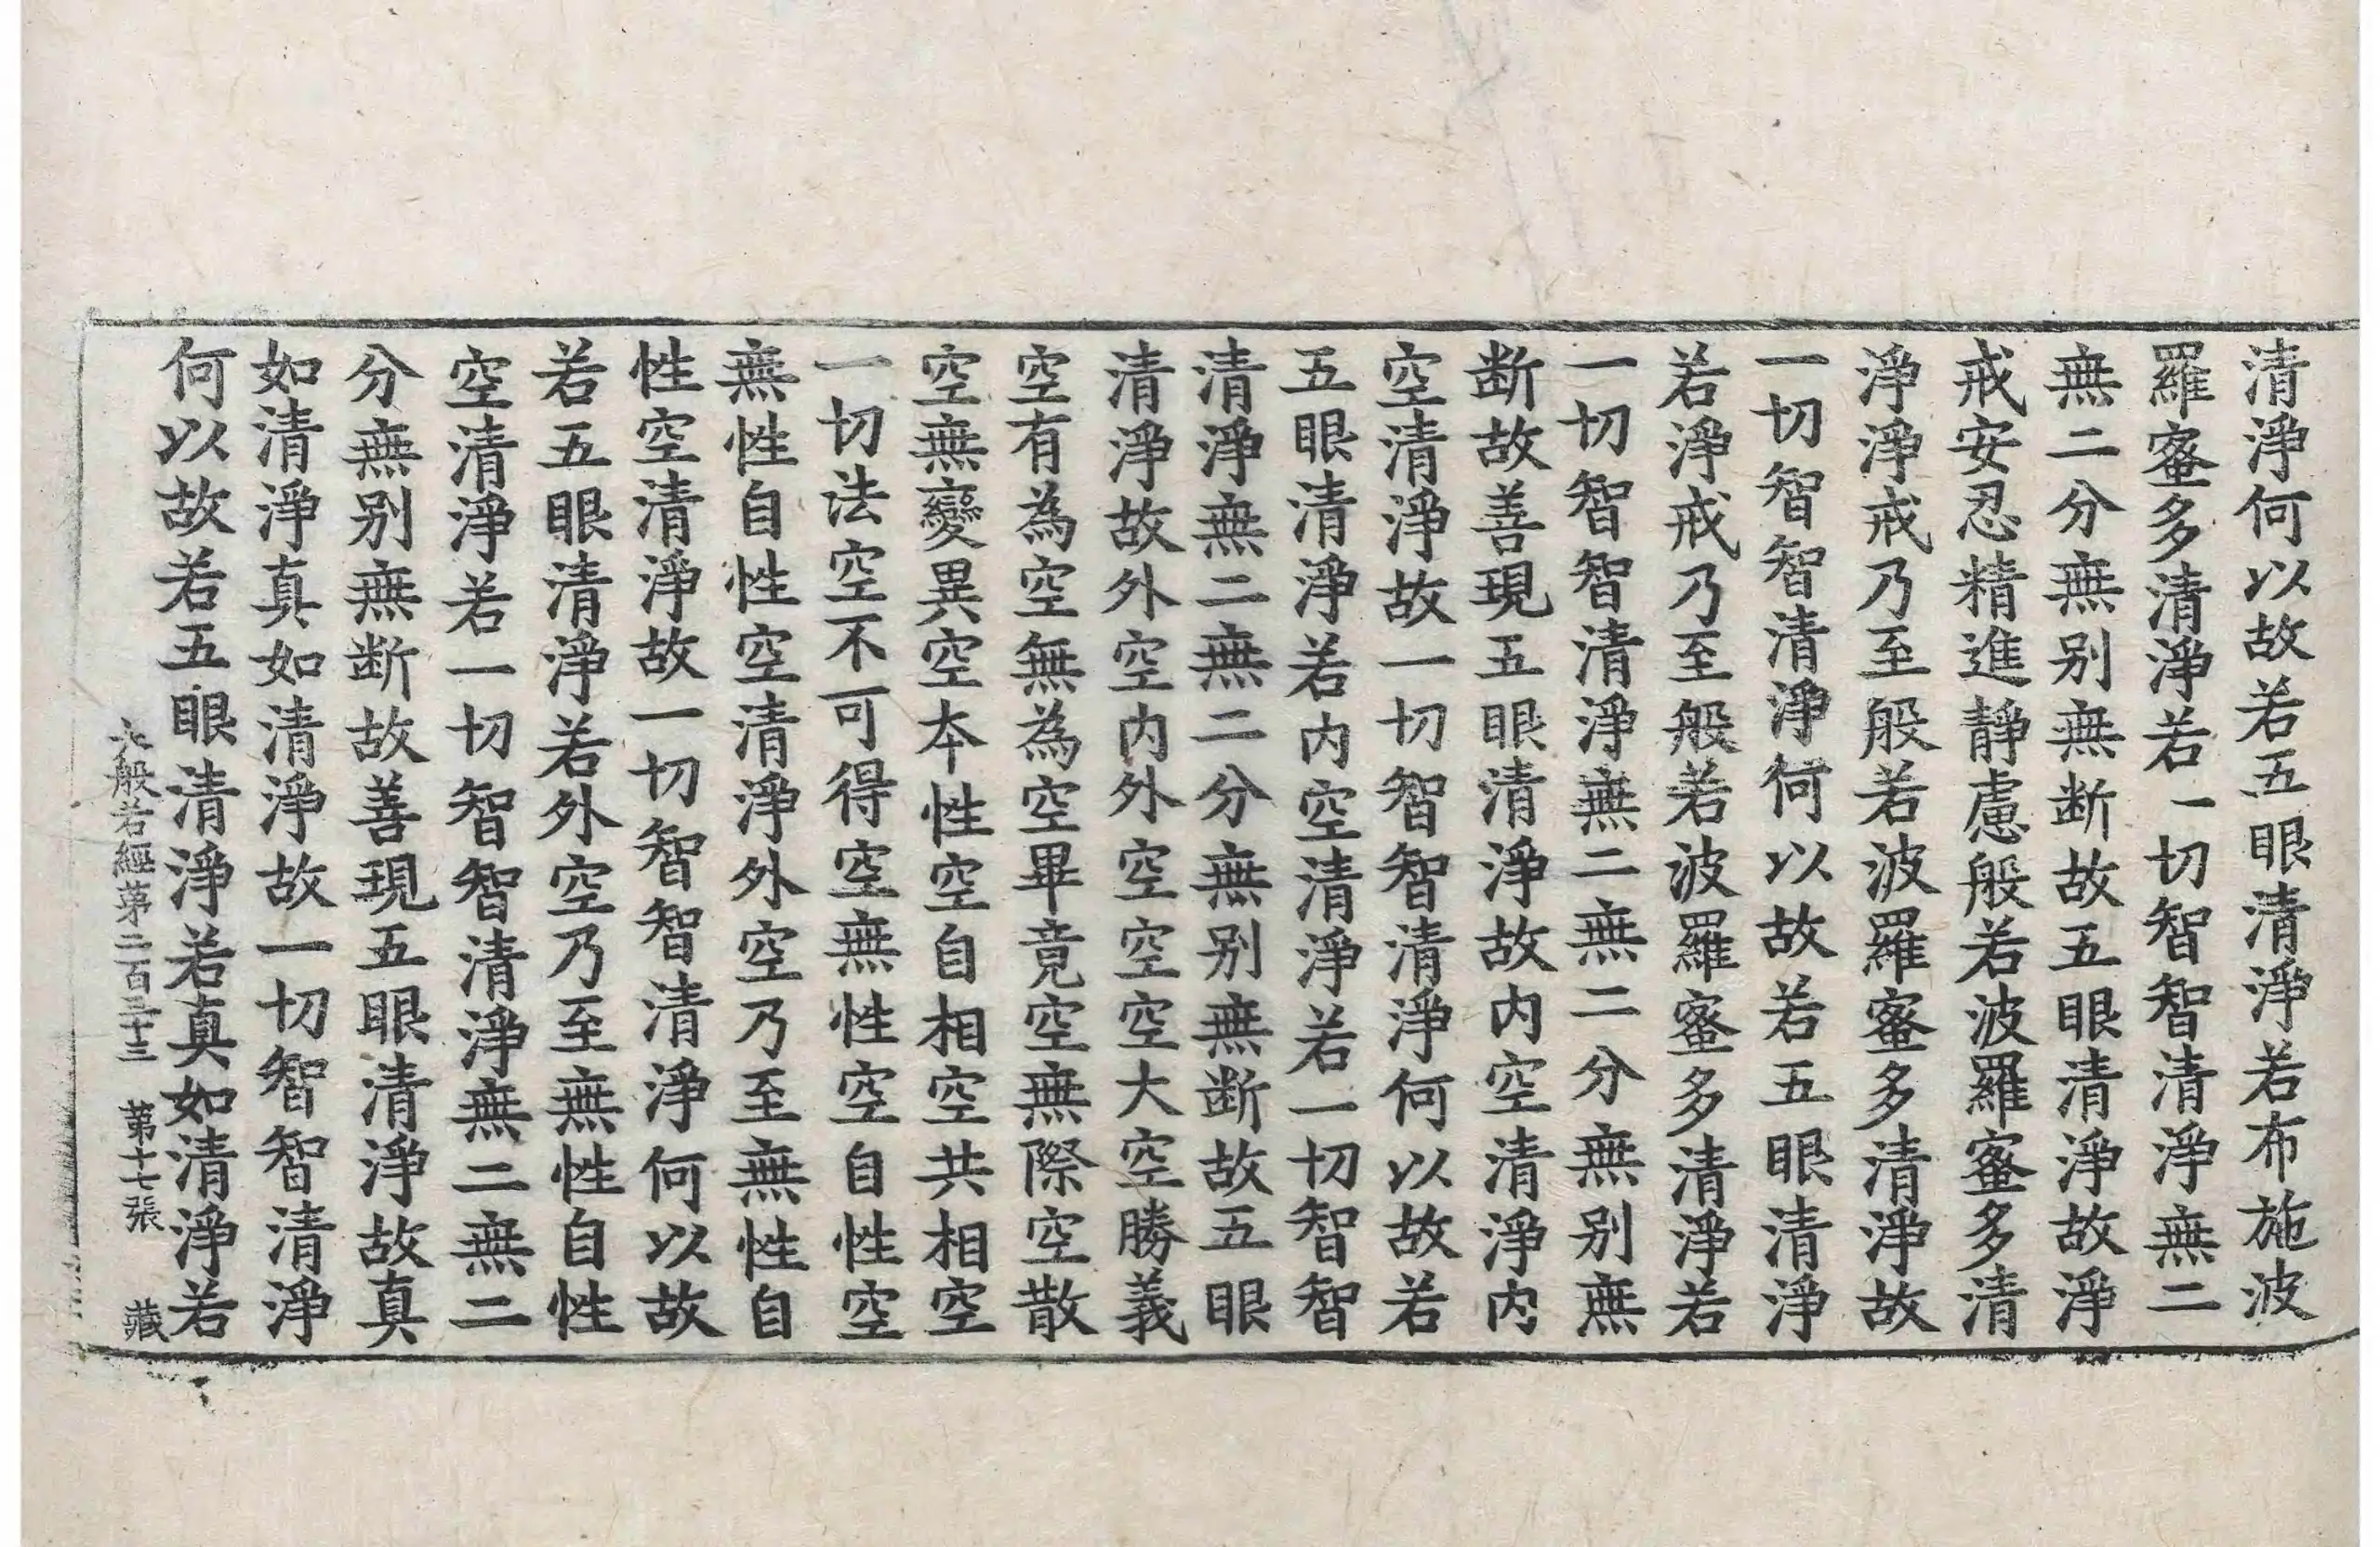 清淨何以故若五眼清淨若布施波
羅蜜多清淨若一切智智清淨無二
無二分無别無断故五眼清淨故淨
戒安忍精進靜慮般若波羅蜜多清
淨淨戒乃至般若波羅蜜多清淨故
一切智智清淨何以故若五眼清淨
若淨戒乃至般若波羅蜜多清淨若
一切智智清淨無二無二分無别無
断故善現五眼清淨故内空清淨内
空清淨故一切智智清淨何以故若
五眼清淨若内空清淨若一切智智
清淨無二無二分無别無断故五眼
清淨故外空内外空空空大空勝義
空有為空無為空畢竟空無際空散
空無變異空本性空自相空共相空
一切法空不可得空無性空自性空
無性自性空清淨外空乃至無性自
性空清淨故一切智智清淨何以故
若五眼清淨若外空乃至無性自性
空清淨若一切智智清淨無二無二
分無别無断故善現五眼清淨故真
如清淨真如清淨故一切智智清淨
何以故若五眼清淨若真如清淨若
大般若經第二百三十三 第十七張 藏